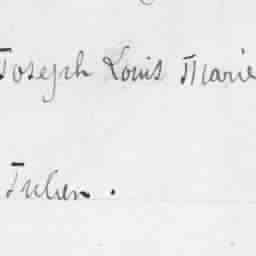 Joseph Louis Marie
Julien .